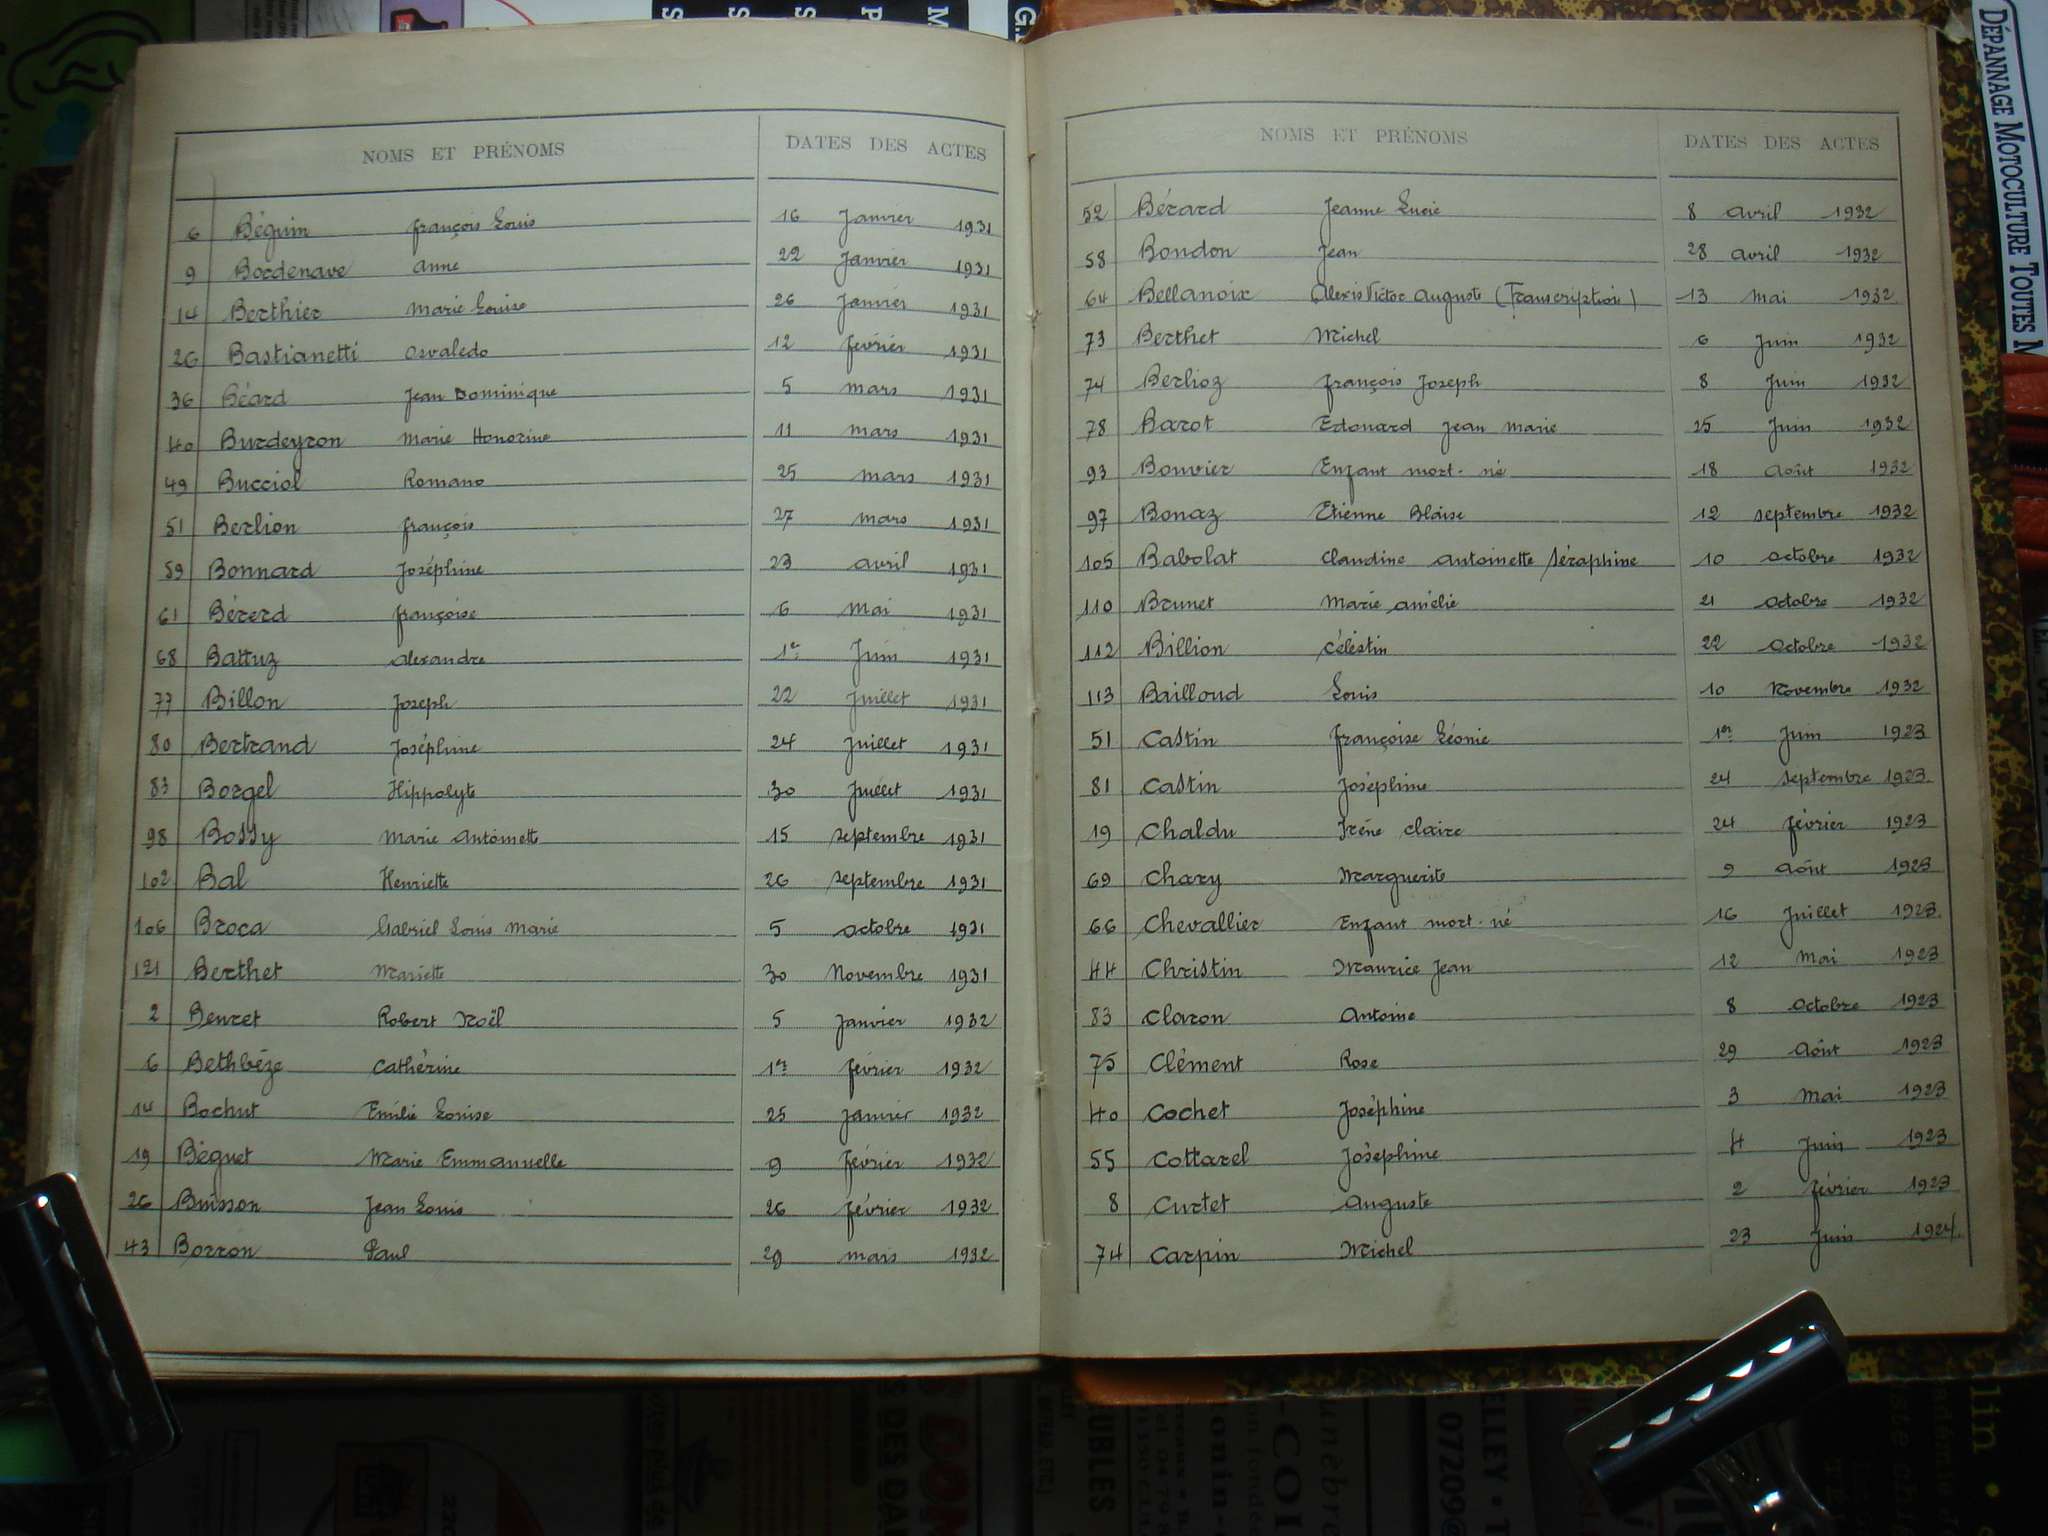 DÉPANNAGE MOTOCULTURE TOUTES M
NOMS ET PRÉNOMS DATES DES ACTES
6 Béguin françois Louis 16 Janvier 1931
9 Bordenave anne 22 Janvier 1931
14 Berthier Marie Louise 26 Janvier 1931
26 Bastianetti Osvaledo 12 février 1931
36 Béard Jean Dominique 5 mars 1931
40 Burdeyron Marie Honorine 11 mars 1931
49 Bucciol Romano 25 mars 1931
51 Berlion françois 27 mars 1931
59 Bonnard Joséphine 23 avril 1931
61 Bérerd françoise 6 Mai 1931
68 Battuz alexandre 1er Juin 1931
77 Billon Joseph 22 Juillet 1931
80 Bertrand Joséphine 24 Juillet 1931
83 Borgel Hippolyte 30 Juillet 1931
98 Bossy Marie Antoinette 15 septembre 1931
102 Bal Henriette 26 septembre 1931
106 Broca Gabriel Louis Marie 5 octobre 1931
121 Berthet Mariette 30 Novembre 1931
2 Benret Robert Noël 5 Janvier 1932
6 Bethbèze Cathérine 1er février 1932
14 Bochut Emilie Louise 25 Janvier 1932
19 Béguet Marie Emmanuelle 9 février 1932
26 Buisson Jean Louis 26 février 1932
43 Borron Paul 29 mars 1932
NOMS ET PRÉNOMS DATES DES ACTES
52 Bérard Jeanne Lucie 8 avril 1932
58 Bondon Jean 28 avril 1932
64 Bellanoix Alexis Victor Auguste (Transcription) 13 Mai 1932
73 Berthet Michel 6 Juin 1932
74 Berlioz françois Joseph 8 Juin 1932
78 Barot Edouard Jean Marie 25 Juin 1932
93 Bouvier Enfant mort-né 18 Août 1932
97 Bonaz Etienne Blaise 12 septembre 1932
105 Babolat Claudine Antoinette Séraphine 10 octobre 1932
110 Brunet Marie Amélie 21 octobre 1932
112 Billion Célestin 22 octobre 1932
113 Bailloud Louis 10 Novembre 1932
51 Castin françoise Léonie 1er Juin 1923
81 Castin Joséphine 24 septembre 1923
19 Chaldu Irène Claire 24 février 1923
69 Chary Marguerite 9 Août 1923
66 Chevallier Enfant mort-né 16 Juillet 1923
44 Christin Maurice Jean 12 Mai 1923
83 Claron Antoine 8 Octobre 1923
75 Clément Rose 29 Août 1923
40 Cochet Joséphine 3 Mai 1923
55 Cottarel Joséphine 4 Juin 1923
8 Curtet Auguste 2 février 1923
74 Carpin Michel 23 Juin 1924